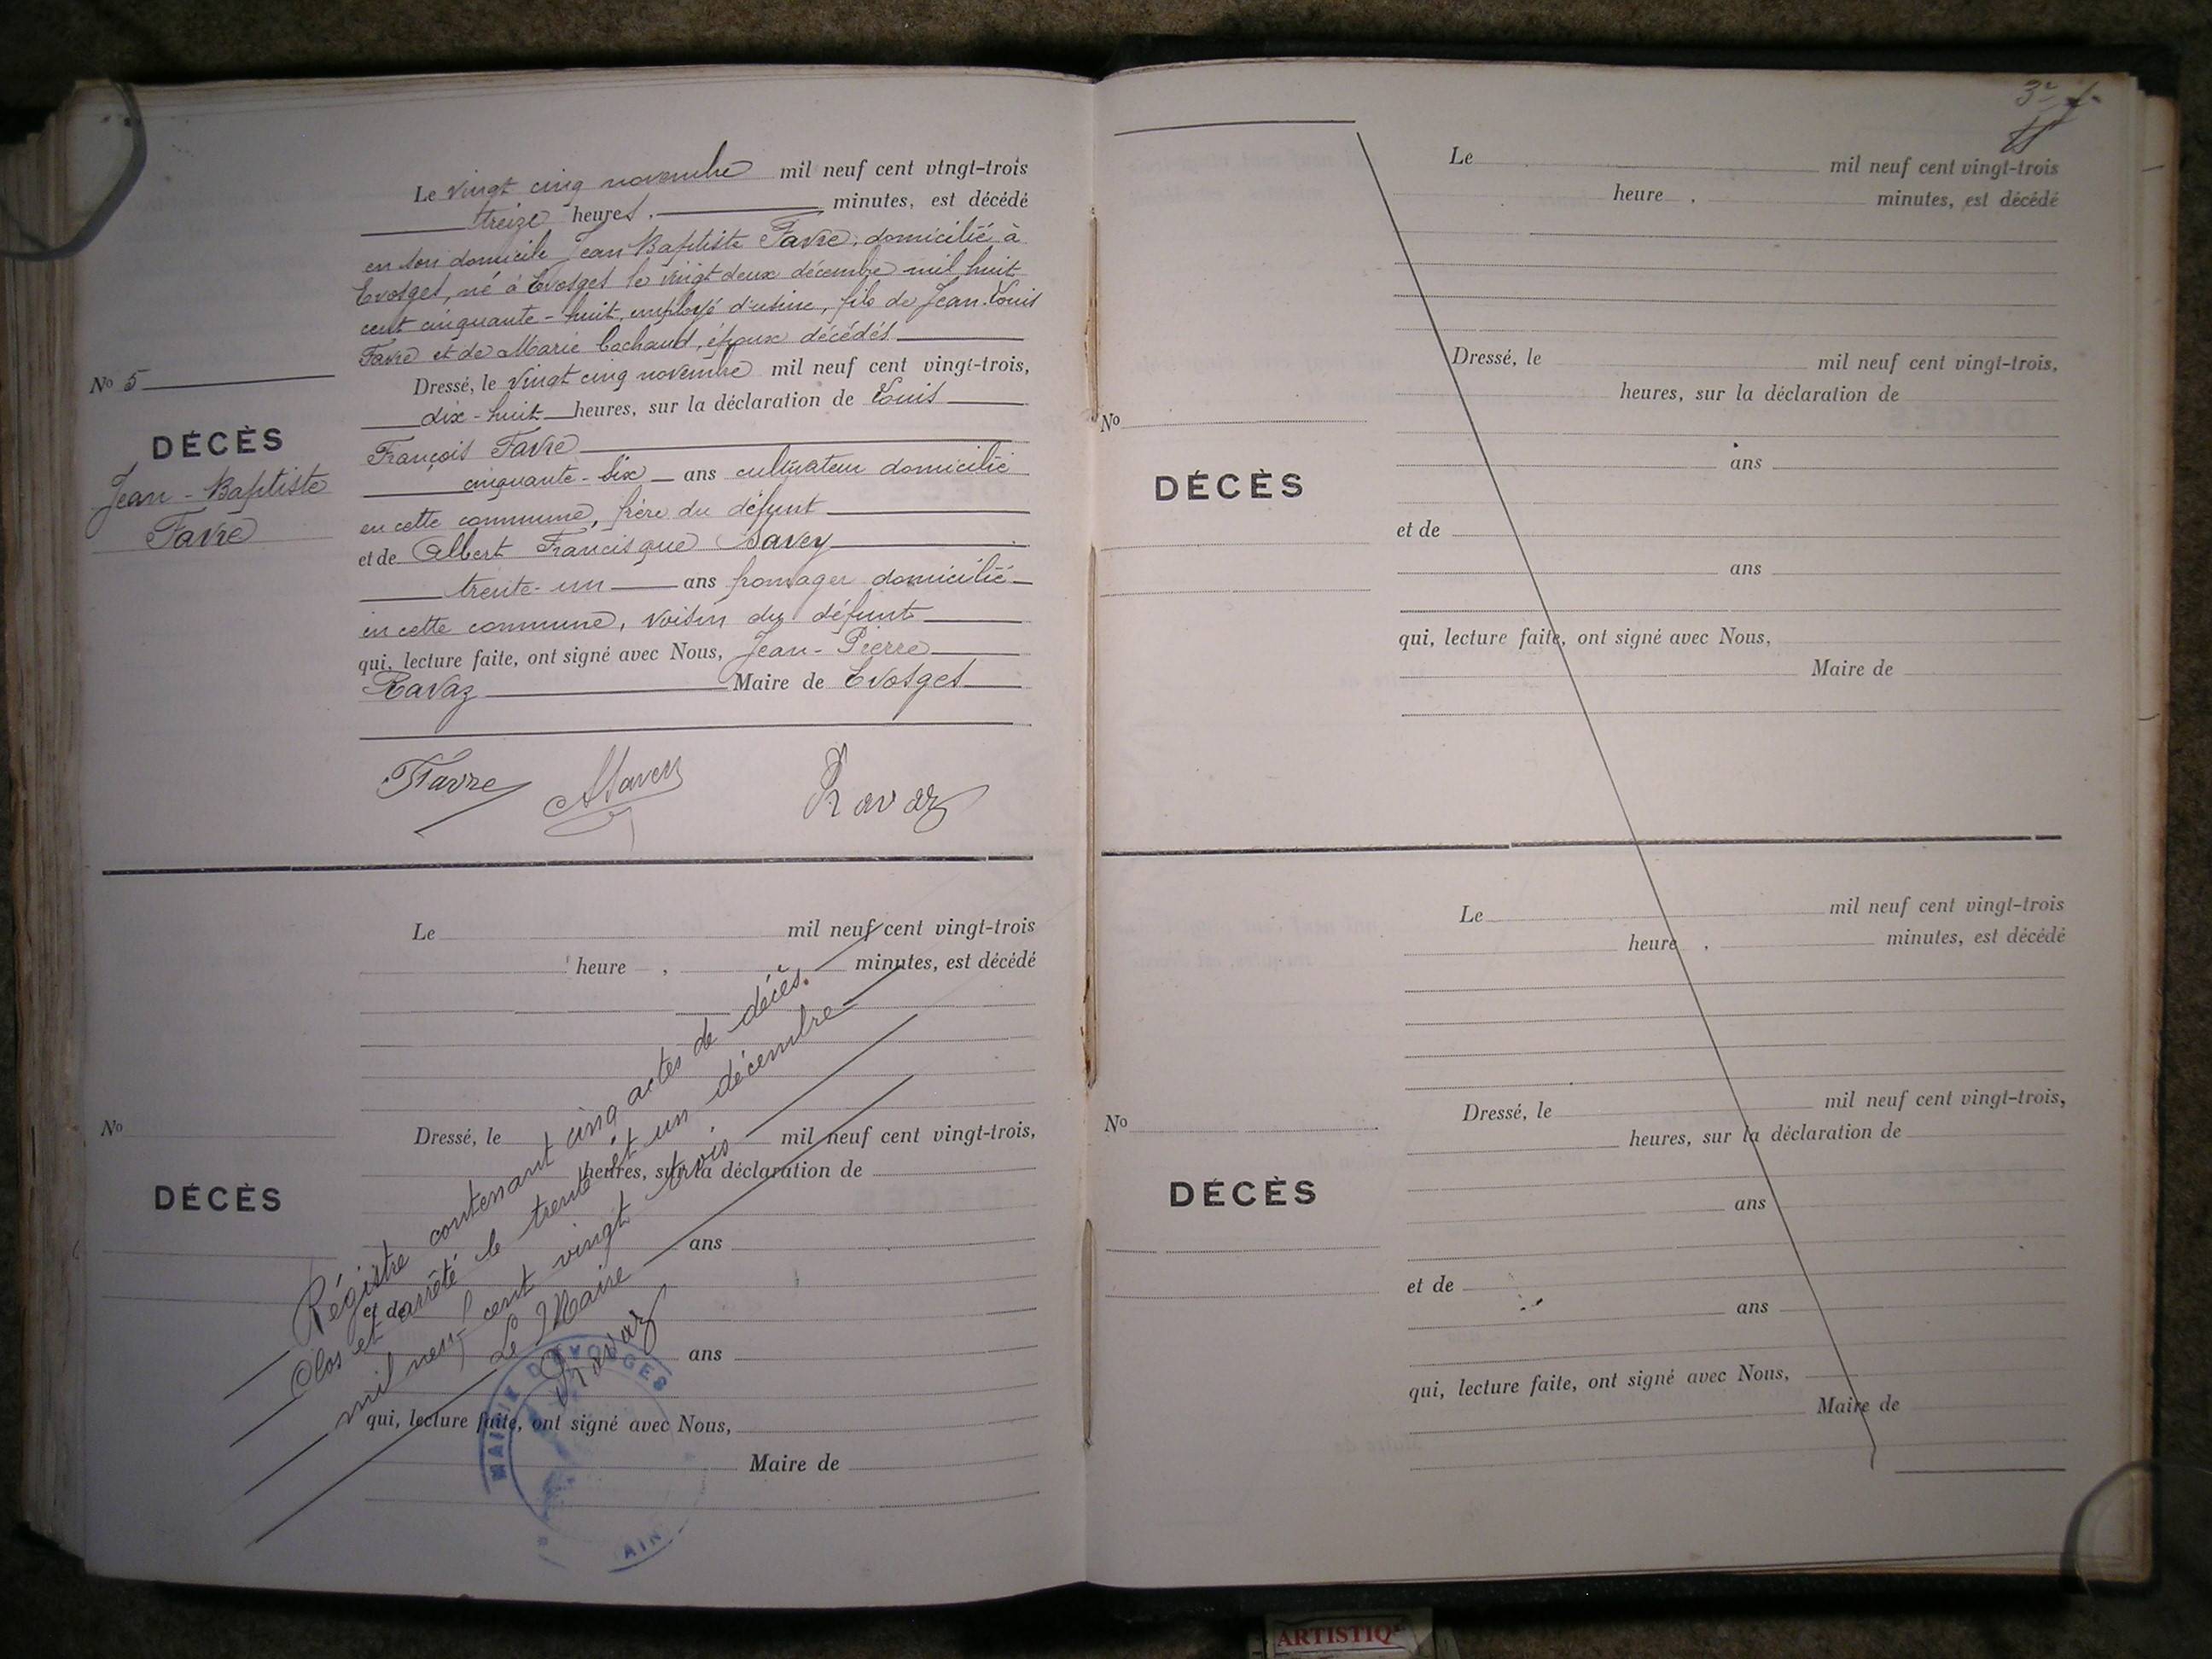 Le vingt cinq novembre mil neuf cent vingt-trois
treize heures, minutes, est décédé
en son domicile Jean Baptiste Favre, domicilié à
Evosges, né à Evosges le vingt deux décembre mil huit
cent cinquante-huit, employé d'usine, fils de Jean-Louis
Favre et de Marie Cochaud, époux décédés
No 5
DÉCÈS
Jean-Baptiste
Favre
Dressé, le vingt cinq novembre mil neuf cent vingt-trois,
dix-huit heures, sur la déclaration de Louis
François Favre
cinquante-six ans cultivateur domicilié
en cette commune, frère du défunt
et de Albert Francisque Savey
trente-un ans fromager domicilié
en cette commune, voisin du défunt
qui, lecture faite, ont signé avec Nous, Jean-Pierre
Ravaz Maire de Evosges
Favre ASavey Ravaz
Le mil neuf cent vingt-trois
heure , minutes, est décédé
No
DÉCÈS
Dressé, le mil neuf cent vingt-trois,
heures, sur la déclaration de
ans
et de
ans
qui, lecture faite, ont signé avec Nous,
Maire de
Régistre contenant cinq actes de décès.
Clos et arrêté le trente et un décembre
mil neuf cent vingt trois
Le Maire
Ravaz
MAIRIE D'EVOSGES
AIN
3e
Le mil neuf cent vingt-trois
heure , minutes, est décédé
Dressé, le mil neuf cent vingt-trois,
heures, sur la déclaration de
No
DÉCÈS
ans
et de
ans
qui, lecture faite, ont signé avec Nous,
Maire de
Le mil neuf cent vingt-trois
heure , minutes, est décédé
Dressé, le mil neuf cent vingt-trois,
No
heures, sur la déclaration de
DÉCÈS
ans
et de
ans
qui, lecture faite, ont signé avec Nous,
Maire de
ARTISTIQ